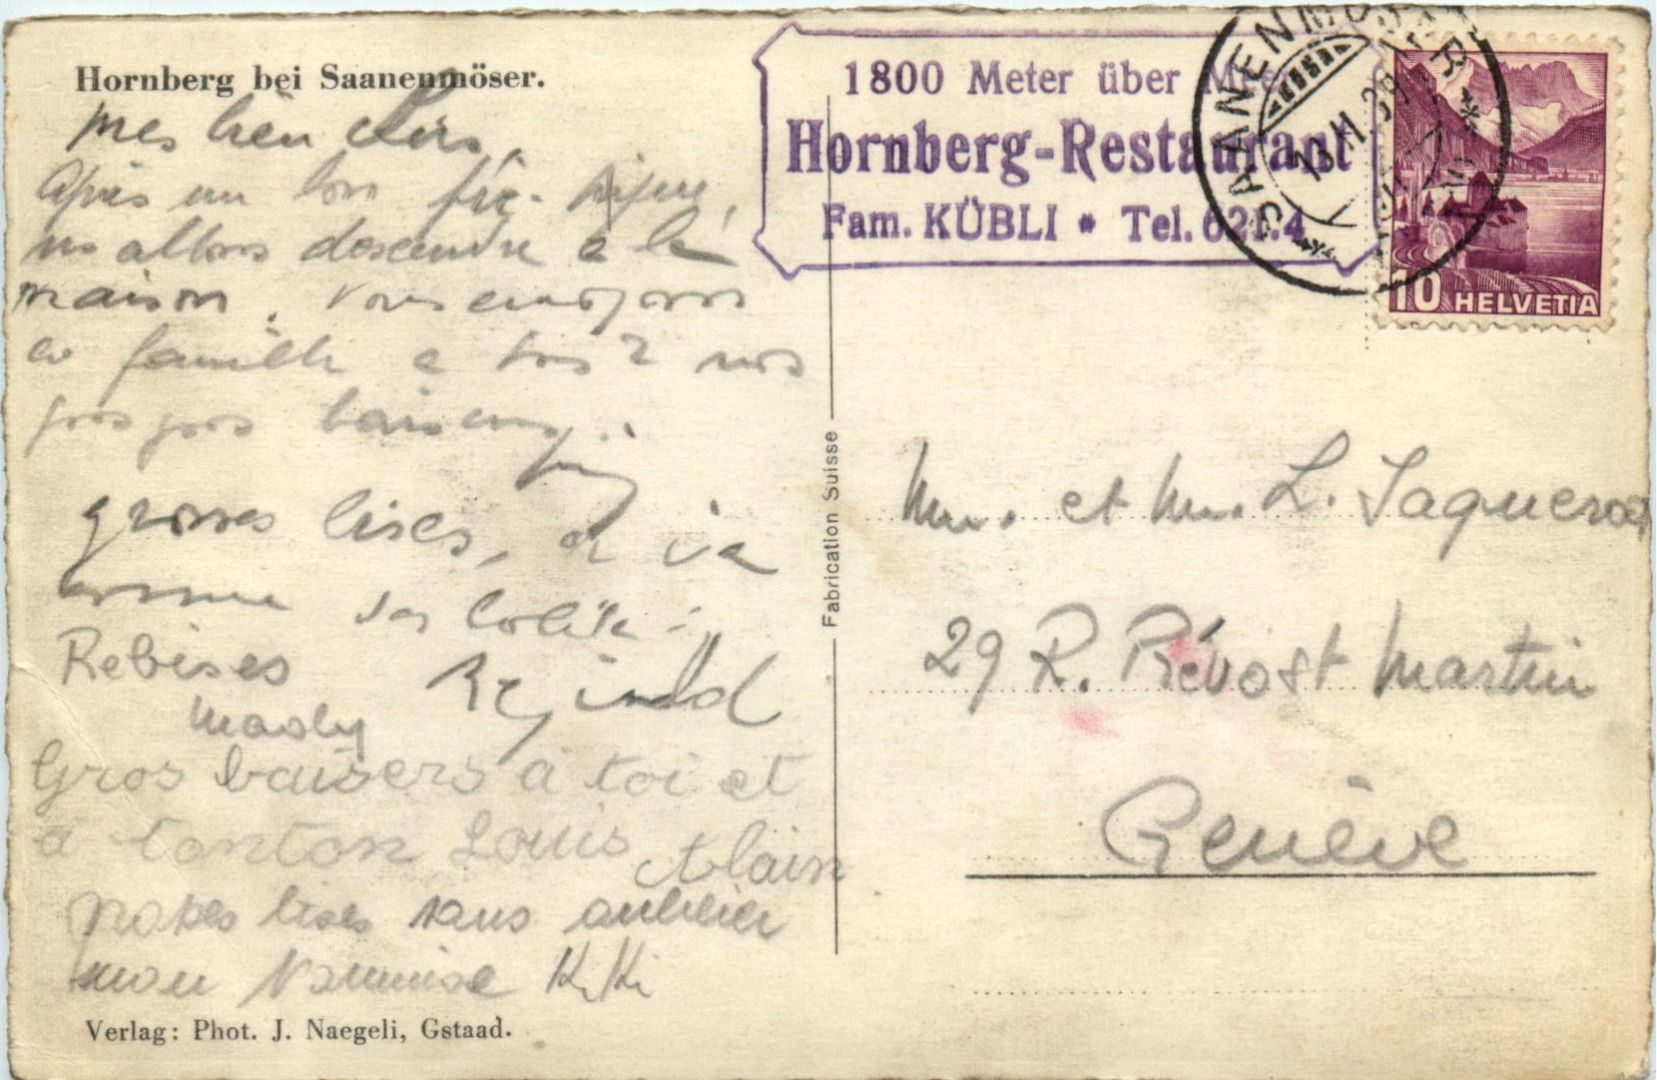 Hornberg bei Saanenmöser.
1800 Meter über Meer
Hornberg-Restaurant
Fam. KÜBLI * Tel. 621.4
SAANENMÖSER
10 HELVETIA
mes bien chers,
Après un bon pic-nique,
ns allons descendre à la
maison. Vous envoyons
en famille à tous 2 nos
gros gros baisers.
grosses bises,
comme
Rebises
Mady
Gros baisers à toi et
à tonton Louis Alain
bises sans oublier
mon Kiki
Verlag: Phot. J. Naegeli, Gstaad.
Fabrication Suisse
Mr. et Mme. L. Jaquerod
29 R. Prévost Martin
Genève